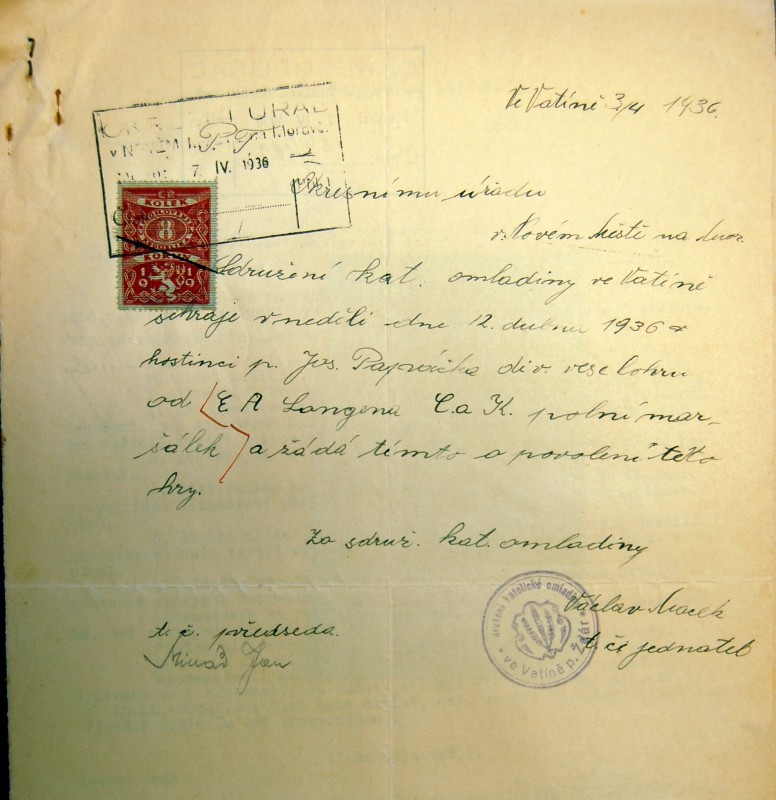 Ve Vatíně 3/4 1936.
OKRESNÍ ÚŘAD
v NOVÉM
7 IV. 1936
P.T.
Okresnímu úřadu
v Novém Městě na Mor.
KOLEK
8
KORUN
1919
Sdružení kat. omladiny ve Vatíně
sehraje v neděli dne 12. dubna 1936 v
hostinci p. Jos. div. veselohru
od E A Langena C. a K. polní mar-
šálek a žádá tímto o povolení této
hry.
Za sdruž. kat. omladiny
Václav Macek
t. č. jednatel
t. č. předseda.
Jan
Sdružení katolické omladiny
* ve Vatíně p. Žďár *